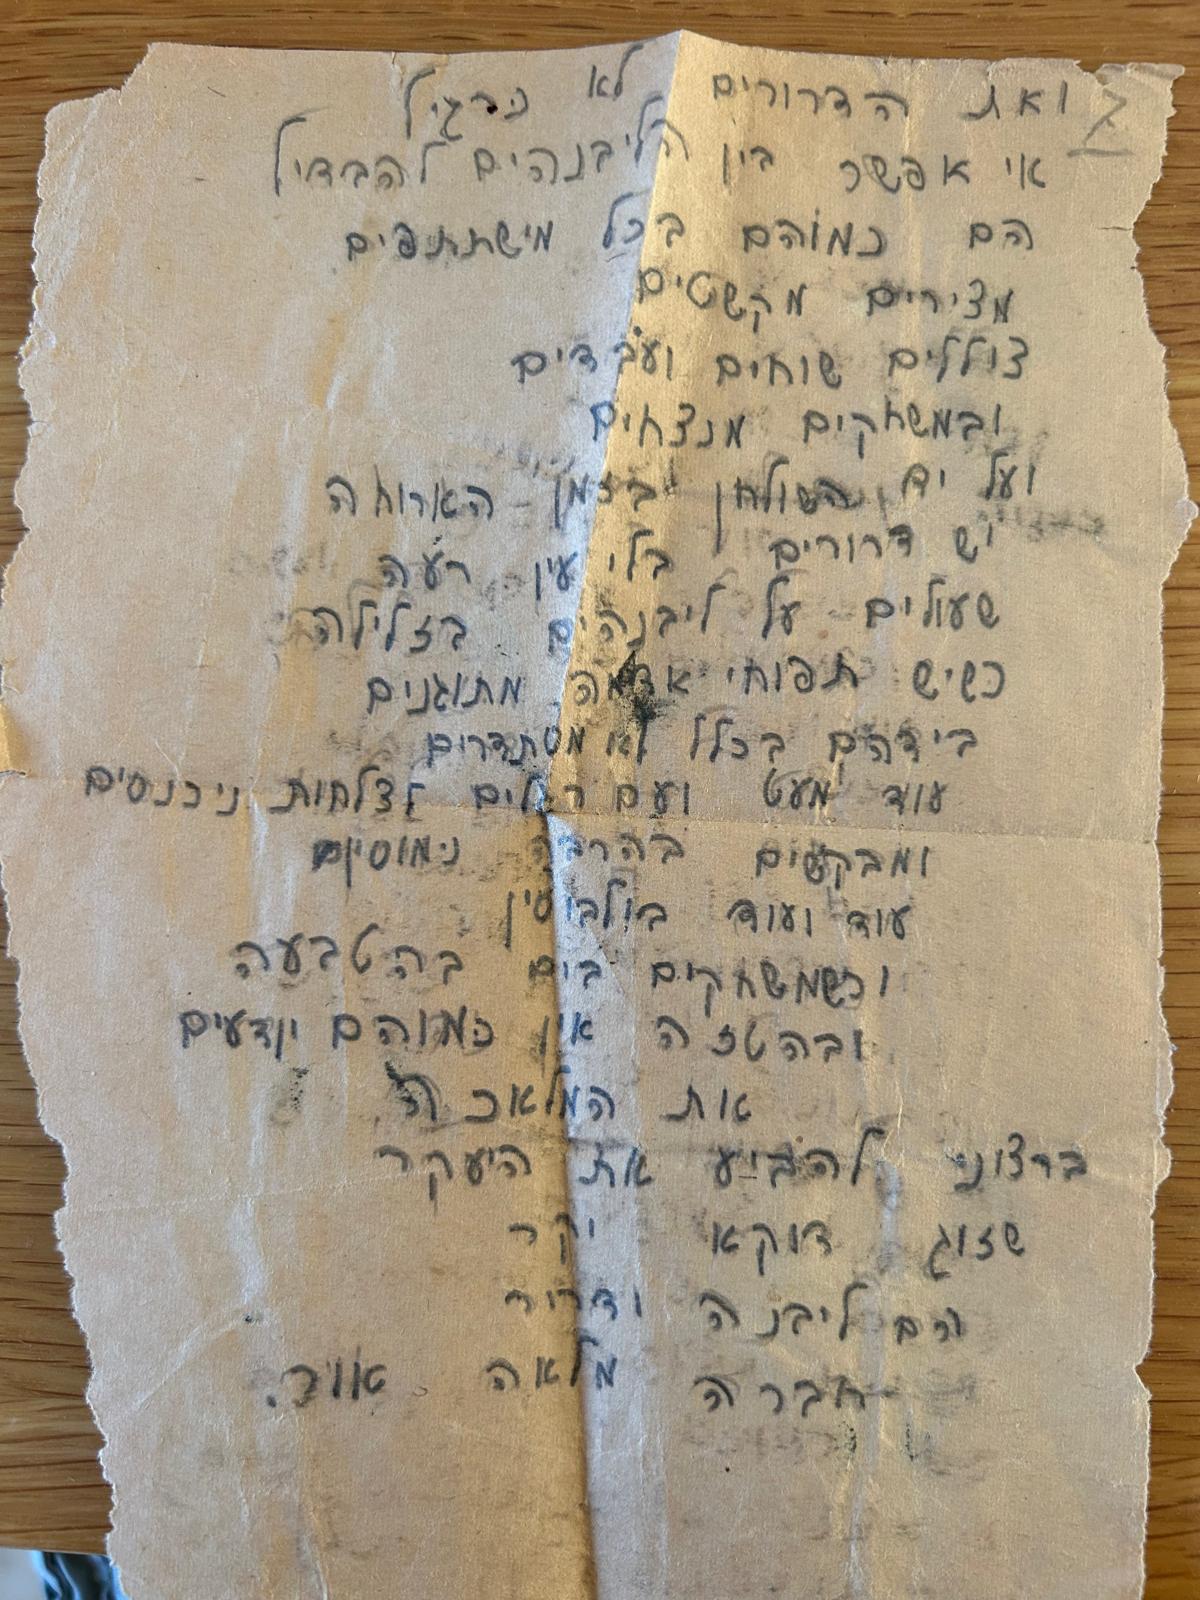 ג ואת הדרורים לא נרגיל
אי אפשר בין הליבנהים להבדיל
הם כמוהם בכל מישתתפים
מצירים מקשטים
צוללים שוחים ועבדים
ובמשחקים מנצחים
ועל יד השולחן בזמן הארוחה
יש דרורים בלי עין רעה
שעולים על ליבנהים בזלילה
כשיש תפוחי אדמה מתוגנים
בידהם בכלל לא מסתדרים
עוד מעט ועם רגלים לצלחות ניכנסים
ומבקשים בהרבה נימוסים
עוד ועוד בולבוסין
וכשמשחקים בים בהטבעה
ובהטזה אין כמוהם יודעים
את המלאכה
ברצוני להביע את היעקר
שזוג דוקא יקר
הם ליבנה ודרור
חברה מלאה אור.